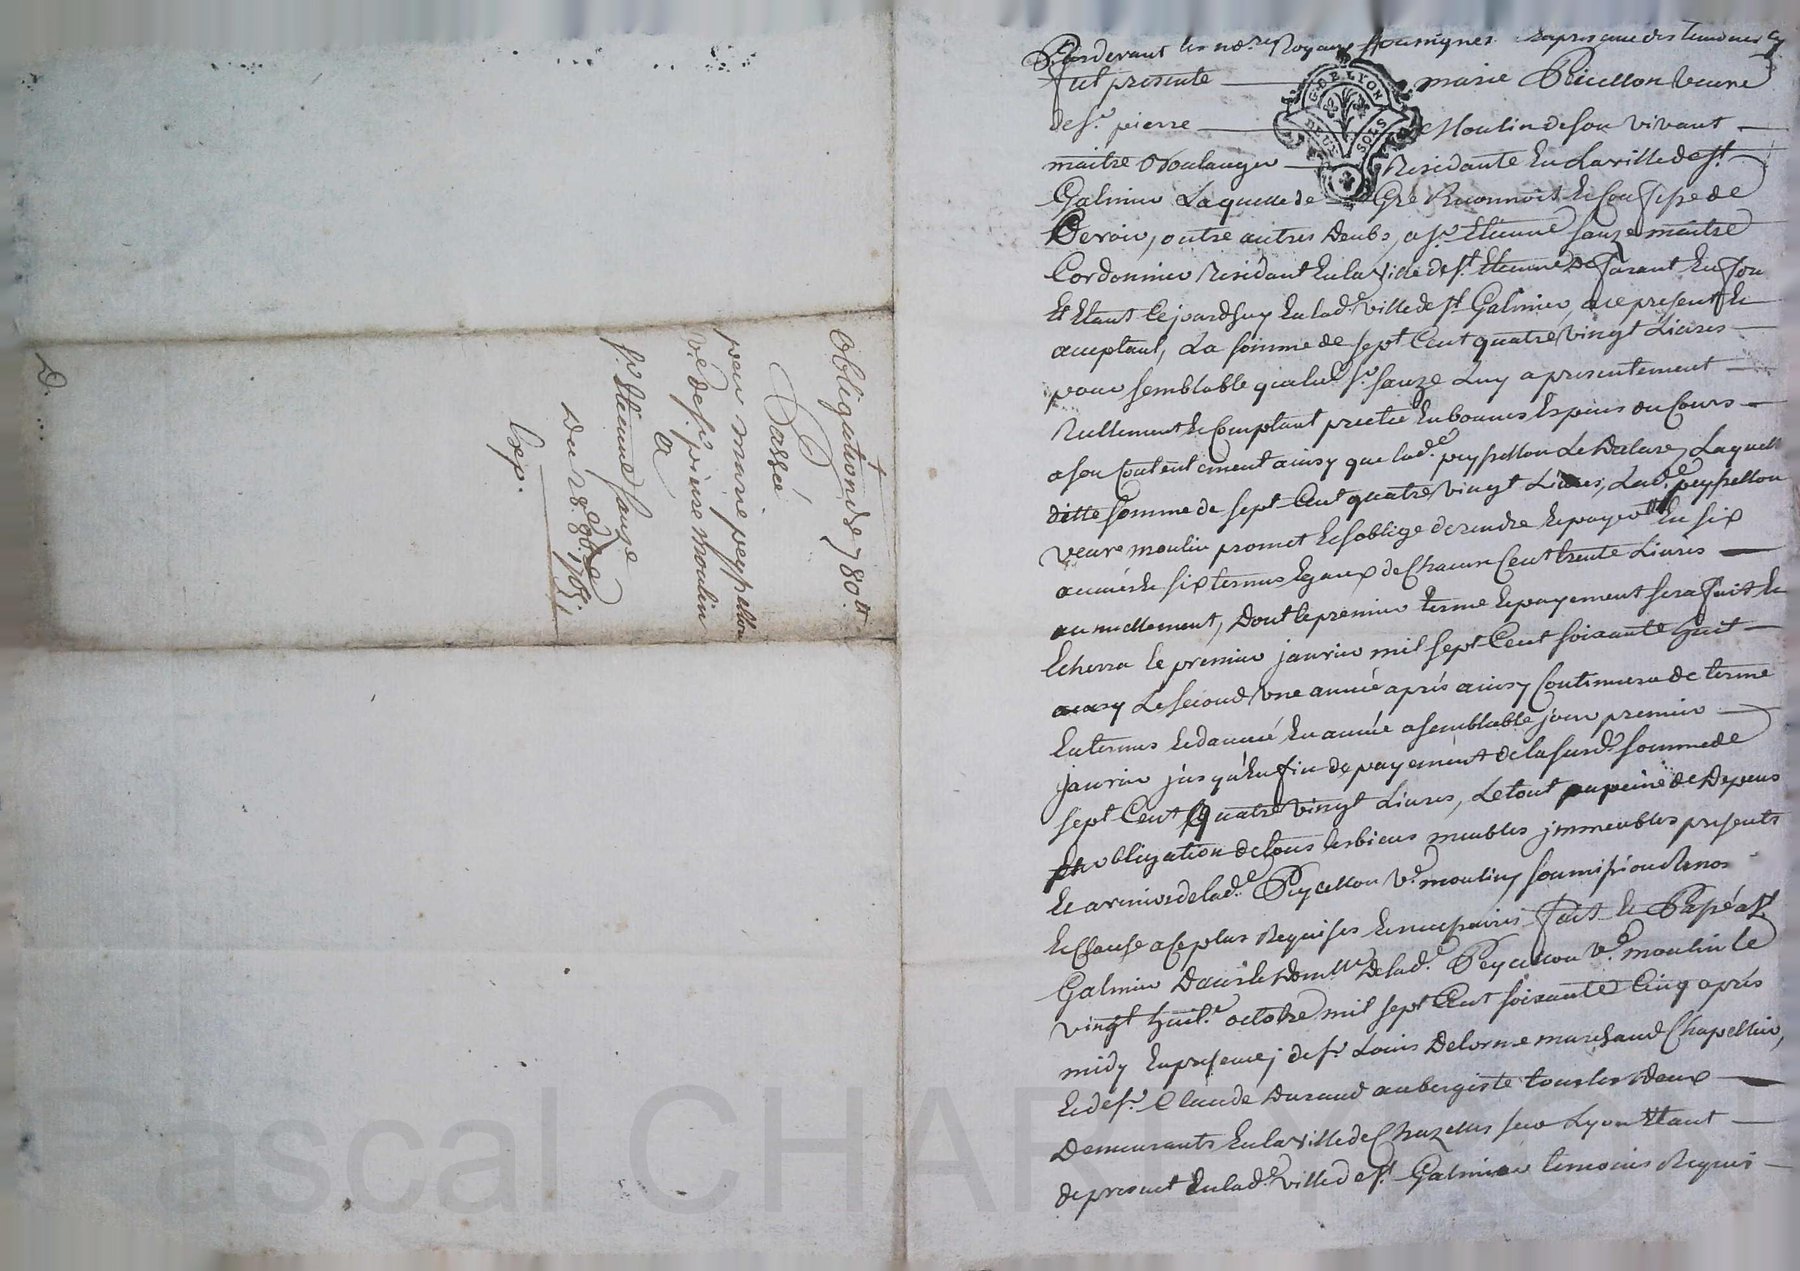 Obligation de 780tt
Passée
par marie peyssellon
ve. de sr. pierre moulin
a
sr. Etienne sauze
Du 28. 8bre. 1765./.
Exp.
D.
Pardevant les nore. Royaux soussignés
fut presente marie Peicellon veuve
de sr. pierre Moulin de son vivant
maitre Boulanger Residante En La ville de st.
Galmier Laquelle de Gré Reconnoit Et Confesse de
Devoir, outre autres Deubs, a sr. Etienne sauze maitre
Cordonnier Residant En la ville de st. Etienne De furant En for
Et Etant Cejourd'huy En lad. ville de st. Galmier, a ce present Et
acceptant, La somme de sept Cent quatre vingt Livres
pour semblable que led. sr. sauze Luy a presentement
Reellement Et Comptant prettée En bonnes Especes du Cours
a son Contentement ainsy que lad.e peyssellon Le Declare, Laquelle
ditte somme de sept Cent quatre vingt Livres, Lad.e peyssellon
veuve moulin promet Et s'oblige de rendre Et payer En six
années Et six termes Egaux de Chacun Cent trente Livres
annuellement, Dont le premier terme Et payement sera fait Et
Echerra Le premier janvier mil sept Cent soixante huit
ainsy Le second une année après ainsy Continuera de terme
En termes Et d'année En année a semblable jour premier
janvier jusqu'En fin de payement de la susd. somme de
sept Cent Quatre vingt Livres, Le tout a peine de Depens
obligation de tous les biens meubles jmmeubles presents
Et avenir de lad.e Peycellon ve. moulin, soumissions Renon
Et Clauses a ce plus Requises Et necessaires fait Et Passé a st.
Galmier Dans le Domlle. De lad.e Peycellon ve. moulin le
vingt huit.e octobre mil sept Cent soixante Cinq après
midy En presence de sr. Louis Delorme marchand Chapellier,
Et de sr. Claude Durand aubergiste tous les Deux
Demeurants En la ville de Chazelles sur Lyon Etant
de present En lad.e ville de st. Galmier temoins Requis
G. DE LYON
DEUX SOLS
Pascal CHAREYRON